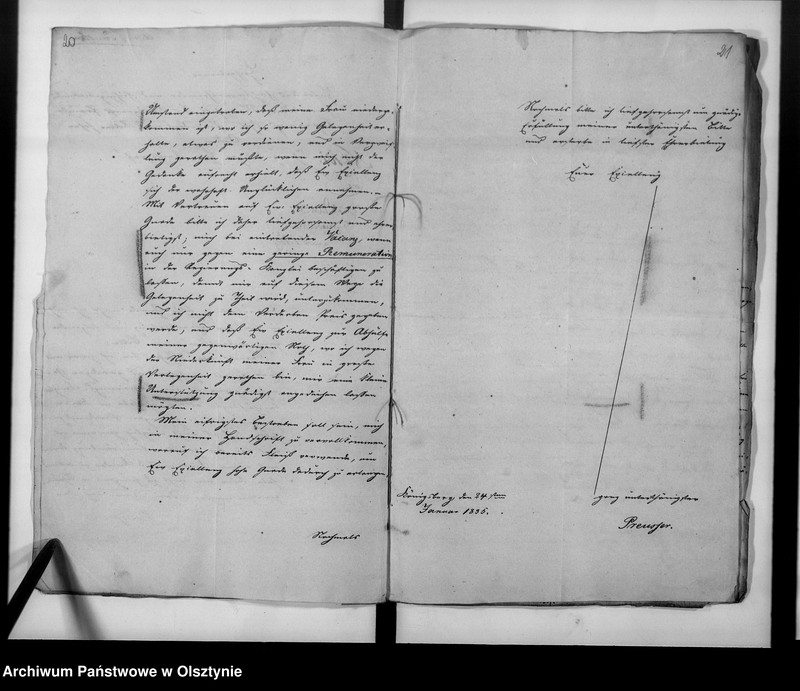 20
Umstand eingetreten, daß meine Frau niederge-
kommen ist, wo ich so wenig Gelegenheit er-
halte, etwas zu verdienen, und in Verzweif-
lung gerathen müßte, wenn mich nicht der
Gedanke aufrecht erhielt, daß Ew Excellenz
sich der wahrhaft Unglücklichen annehmen. –
Mit Vertrauen auf Ew. Excellenz große
Gnade bitte ich daher tiefgehorsamst und ehrer-
bietigst, mich bei eintretender Vacanz, wenn
auch nur gegen eine geringe Remuneration
in der Regierungs-Kanzlei beschäftigen zu
lassen, damit mir auf diesem Wege die
Gelegenheit zu Theil wird, unterzukommen,
und ich nicht dem Verderben Preis gegeben
werde, und daß Ew Excellenz zur Abhülfe
meiner gegenwärtigen Noth, wo ich wegen
der Niederkunft meiner Frau in große
Verlegenheit gerathen bin, mir eine kleine
Unterstützung gnädigst angedeihen lassen
möchten.
Mein eifrigstes Bestreben soll sein, mich
in meiner Handschrift zu vervollkommnen,
worauf ich bereits Fleiß verwende, um
Ew Excellenz hohe Gnade dadurch zu erlangen.
Nochmals
21
Nochmals bitte ich tiefgehorsamst um gnädige
Erfüllung meiner unterthänigsten Bitte
und ersterbe in tiefster Ehrerbietung
Euer Excellenz
Königsberg, den 24 sten
Januar 1836.
ganz unterthänigster
Preusser.
Archiwum Państwowe w Olsztynie